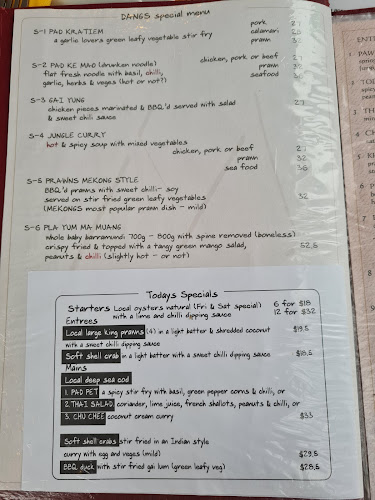 DANGS special menu
pork 27
S-1 PAD KRATIEM calamari 28
a garlic lovers green leafy vegetable stir fry prawn 32
S-2 PAD KE MAO (drunken noodle) chicken, pork or beef 27
flat fresh noodle with basil, chilli, prawn
garlic, herbs & veges (hot or not?) seafood
S-3 GAI YUNG
chicken pieces marinated & BBQ'd served with salad 27
& sweet chili sauce
S-4 JUNGLE CURRY
hot & spicy soup with mixed vegetables
chicken, pork or beef 27
prawn 32
sea food 36
S-5 PRAWNS MEKONG STYLE
BBQ'd prawns with sweet chilli- soy
served on stir fried green leafy vegetables 32
(MEKONGS most popular prawn dish - mild)
S-6 PLA YUM MA MUANG
whole baby barramundi 700g - 800g with spine removed (boneless)
crispy fried & topped with a tangy green mango salad, 52.5
peanuts & chilli (slightly hot - or not)
Todays Specials
Starters Local oysters natural (Fri & Sat special) 6 for $18
with a lime and chilli dipping sauce 12 for $32
Entrees
Local large king prawns (4) in a light batter & shredded coconut $19,5
with a sweet chilli dipping sauce
Soft shell crab in a light batter with a sweet chilli dipping sauce $18,5
Mains
Local deep sea cod
1. PAD PET a spicy stir fry with basil, green pepper corns & chilli, or
2. THAI SALAD coriander, lime juice, french shallots, peanuts & chilli, or
3. CHU CHEE coconut cream curry $33
Soft shell crabs stir fried in an Indian style
curry with egg and veges (mild) $29,5
BBQ duck with stir fried gai lum (green leafy veg) $28,5